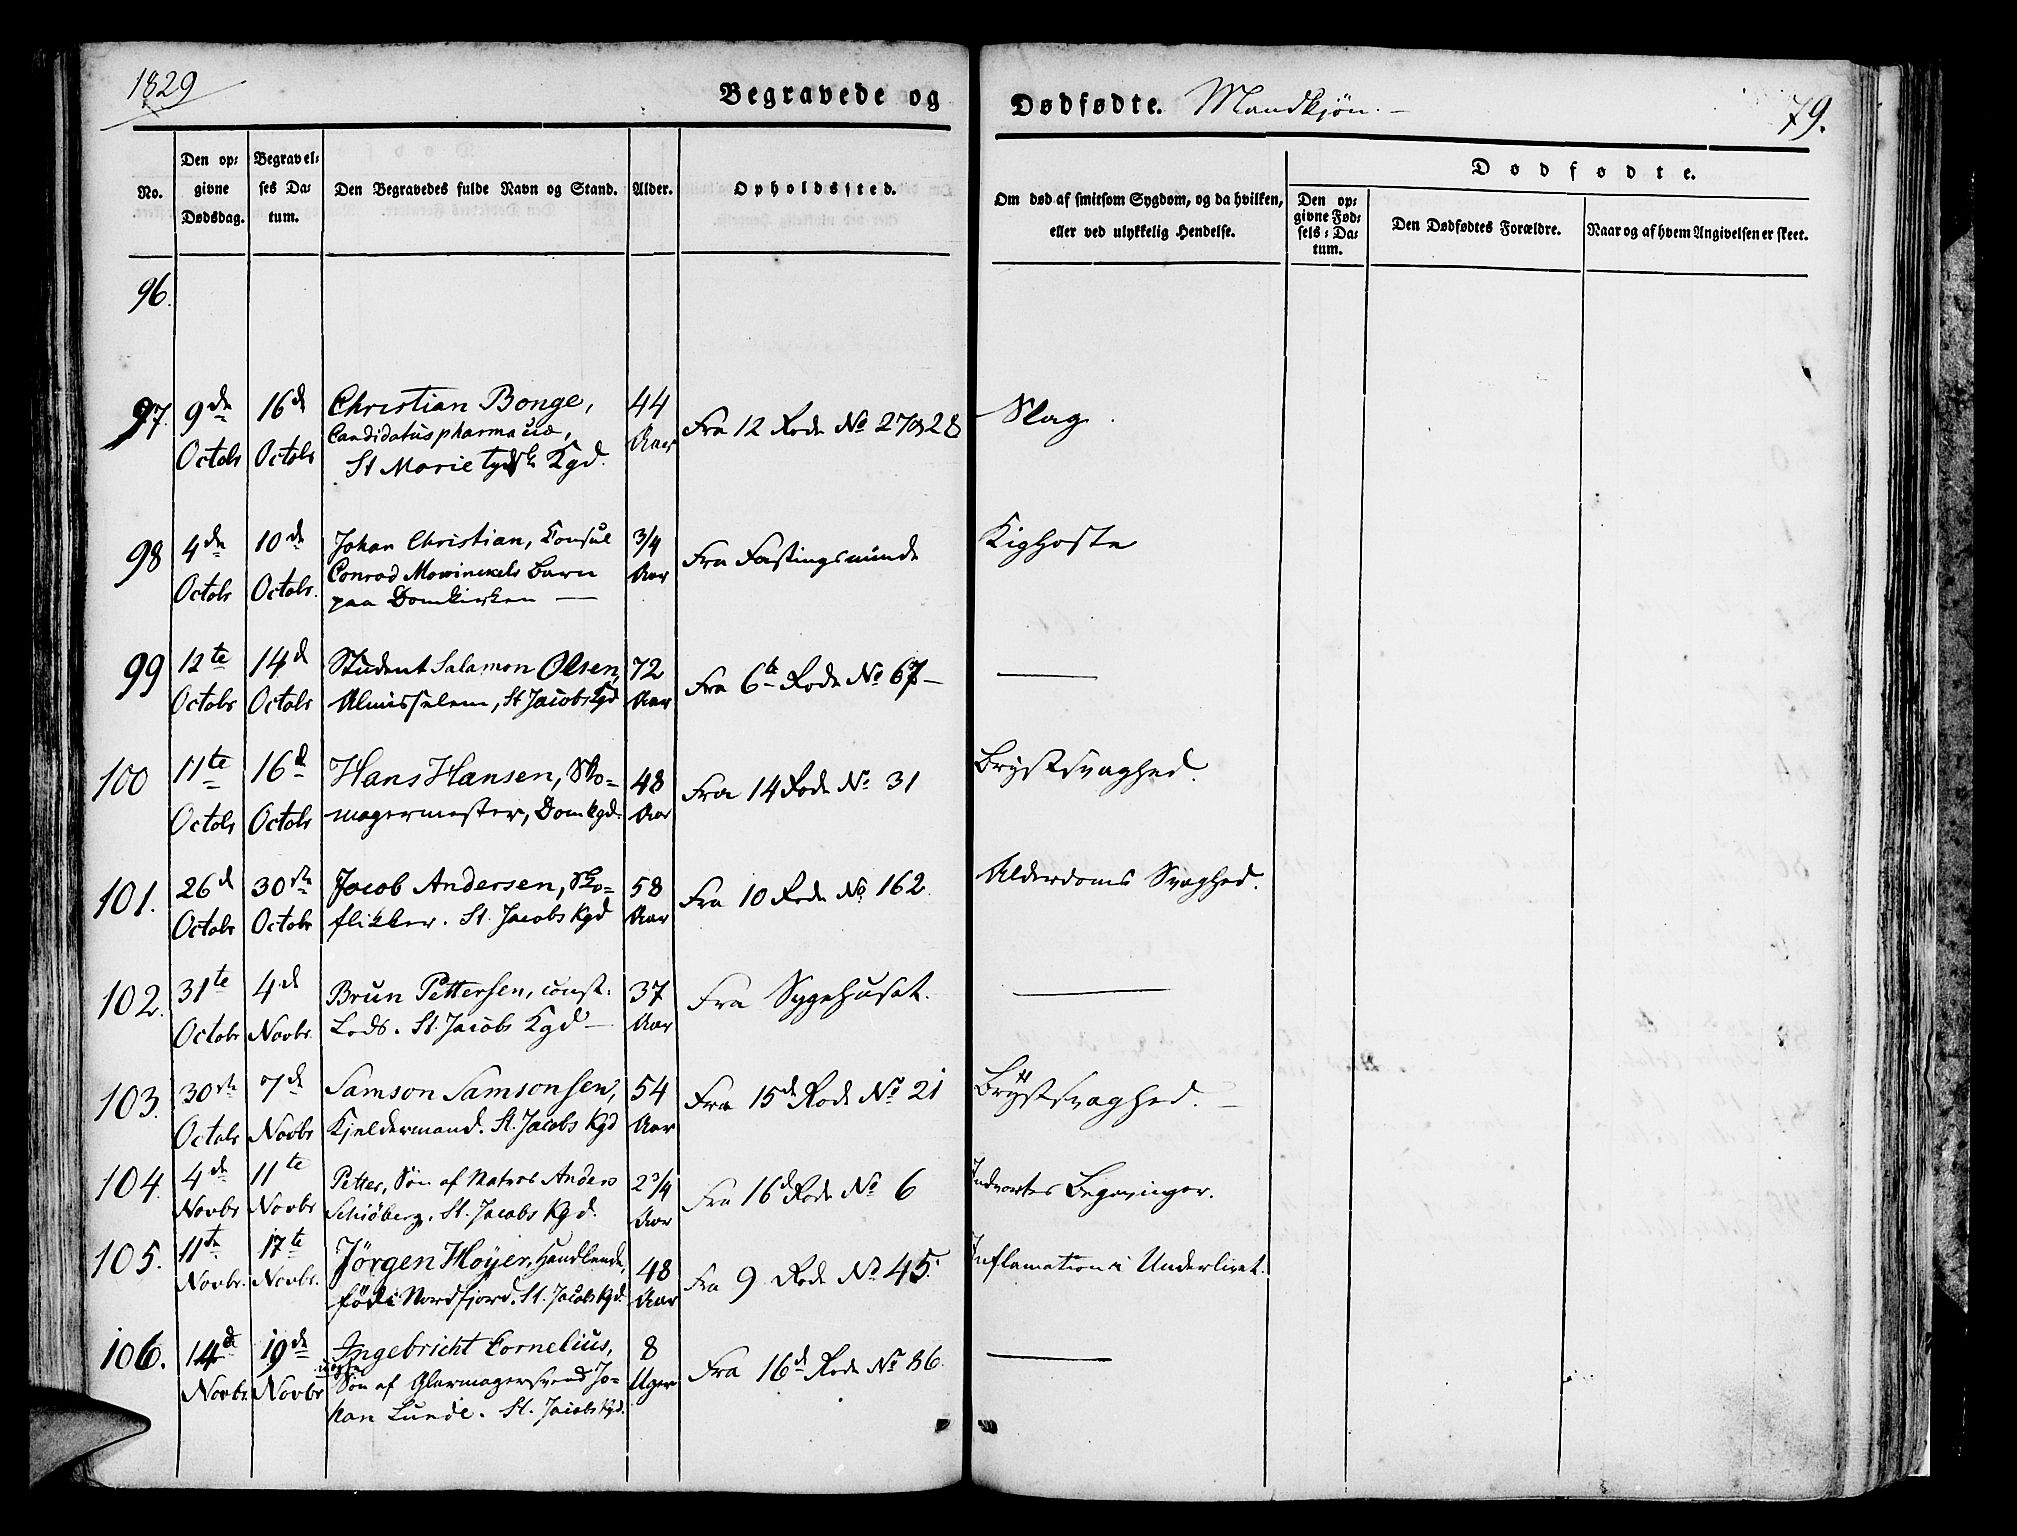 1829
Begravede og Dødfødte. Mandkjøn.
79.
No.
Den opgivne Dødsdag.
Begravelses Datum.
Den Begravedes fulde Navn og Stand.
Alder.
Opholdssted.
Om død af smitsom Sygdom, og da hvilken, eller ved ulykkelig Hendelse.
Dødfødte.
Den opgivne Fødsels-Datum.
Den Dødfødtes Forældre.
Naar og af hvem Angivelsen er skeet.
96.
97. 9de Octobr 16d Octobr Christian Bonge, 44 Aar Fra 12 Rode No 27 og 28 Slag.
Candidatus pharmaciæ,
St Marie tydsk Kgd.
98 4de Octobr 10de Octobr. Johan Christian, Consul 3/4 Aar Fra Fastingsmunde Kighoste
Conrad Mowinckels Barn
paa Domkirken —
99 12te Octobr 14d Octobr Student Salamon Olsen, 72 Aar Fra 6te Rode No 67 — —
Almisselem, St Jacobs Kgd
100 11te Octobr 16d Octobr Hans Hansen, Sko- 48 Aar Fra 14 Rode No 31 Brystsvaghed.
magermester, Dom kgd.
101. 26d Octobr 30te Octobr Jacob Andersen, Sko- 58 Aar Fra 10 Rode No 162. Alderdoms Svaghed.
flikker. St. Jacobs Kgd
102. 31te Octobr 4d Novbr. Brun Pettersen, const. 37 Aar Fra Sygehuset. —
Lods. St. Jacobs Kgd —
103. 30te Octobr 7de Novbr Samson Samsonsen, 54 Aar Fra 15de Rode No 21 Brystsvaghed. —
Kjeldermand. St. Jacobs Kgd
104. 4de Novbr 11te Novbr Petter, Søn af Matros Anders 2 3/4 Aar Fra 16d Rode No 6 Indvortes
Schiøberg, St. Jacobs Kgd.
105. 11te Novbr. 17te Novbr. Jörgen Høyer, Handlende, 48 Aar Fra 9 Rode No 45. Inflamation i Underlivet.
föd i Nordfjord. St. Jacobs Kgd.
106. 14d Novbr 19de Novbr Ingebricht Cornelius, 8 Uger Fra 16d Rode No 86. —
uægte
Søn af Glarmagersvend Jo-
han Lunde. St. Jacobs Kgd.